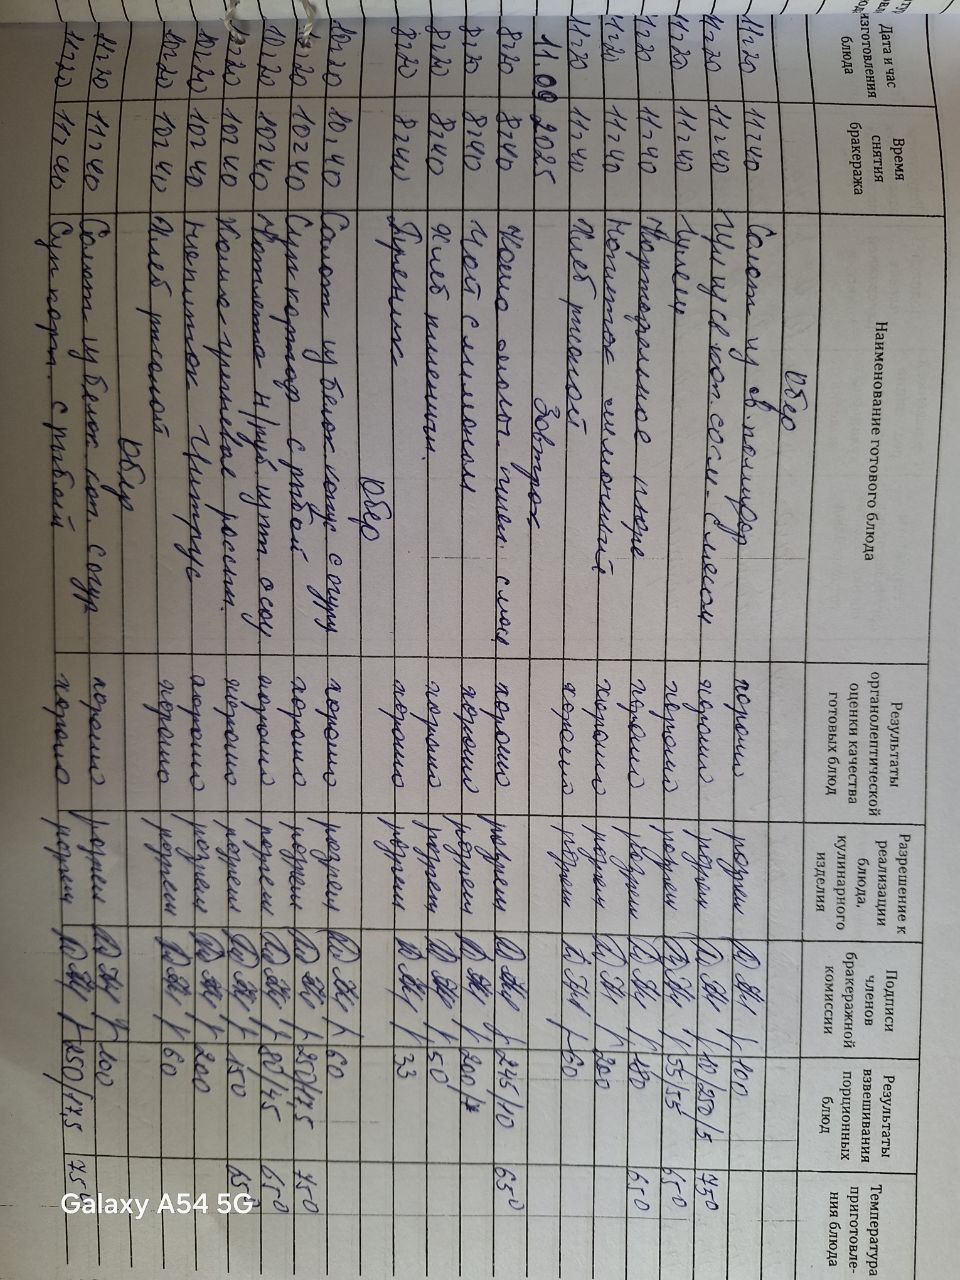 Дата и час изготовления блюда
Время снятия бракеража
Наименование готового блюда
Результаты органолептической оценки качества готовых блюд
Разрешение к реализации блюда, кулинарного изделия
Подписи членов бракеражной комиссии
Результаты взвешивания порционных блюд
Температура приготовления блюда
Обед
11:20 11:40 Салат из св. помидор хорошо разреш 100
11:20 11:40 Щи из св кап. со см. с мясом хорошо разреш 10/250/5 75°
11:20 11:40 Гуляш хорошо разреш 55/55 65°
11:20 11:40 Картофельное пюре хорошо разреш 180 65°
11:20 11:40 Напиток лимонный хорошо разреш 200
11:20 11:40 Хлеб ржаной хорошо разреш 60
11.09 2025 Завтрак
8:20 8:40 Каша молоч. пшен. с масл хорошо разреш 245/10 65°
8:20 8:40 Чай с лимоном хорошо разреш 200/7
8:20 8:40 Хлеб пшеничн. хорошо разреш 50
8:20 8:40 Пряник хорошо разреш 33
Обед
10:20 10:40 Салат из белок кап с огур хорошо разреш 60
10:20 10:40 Суп картоф с рыбой хорошо разреш 250/17,5 75°
10:20 10:40 Котлета н/руб из пт. осоу хорошо разреш 80/45 65°
10:20 10:40 Каша гречневая россып. хорошо разреш 150 65°
10:20 10:40 Напиток Цитрус хорошо разреш 200
10:20 10:40 Хлеб ржаной хорошо разреш 60
Обед
11:20 11:40 Салат из белок. кап. с огур хорошо разреш 100
11:20 11:40 Суп карт. с рыбой хорошо разреш 250/17,5 75°
Galaxy A54 5G